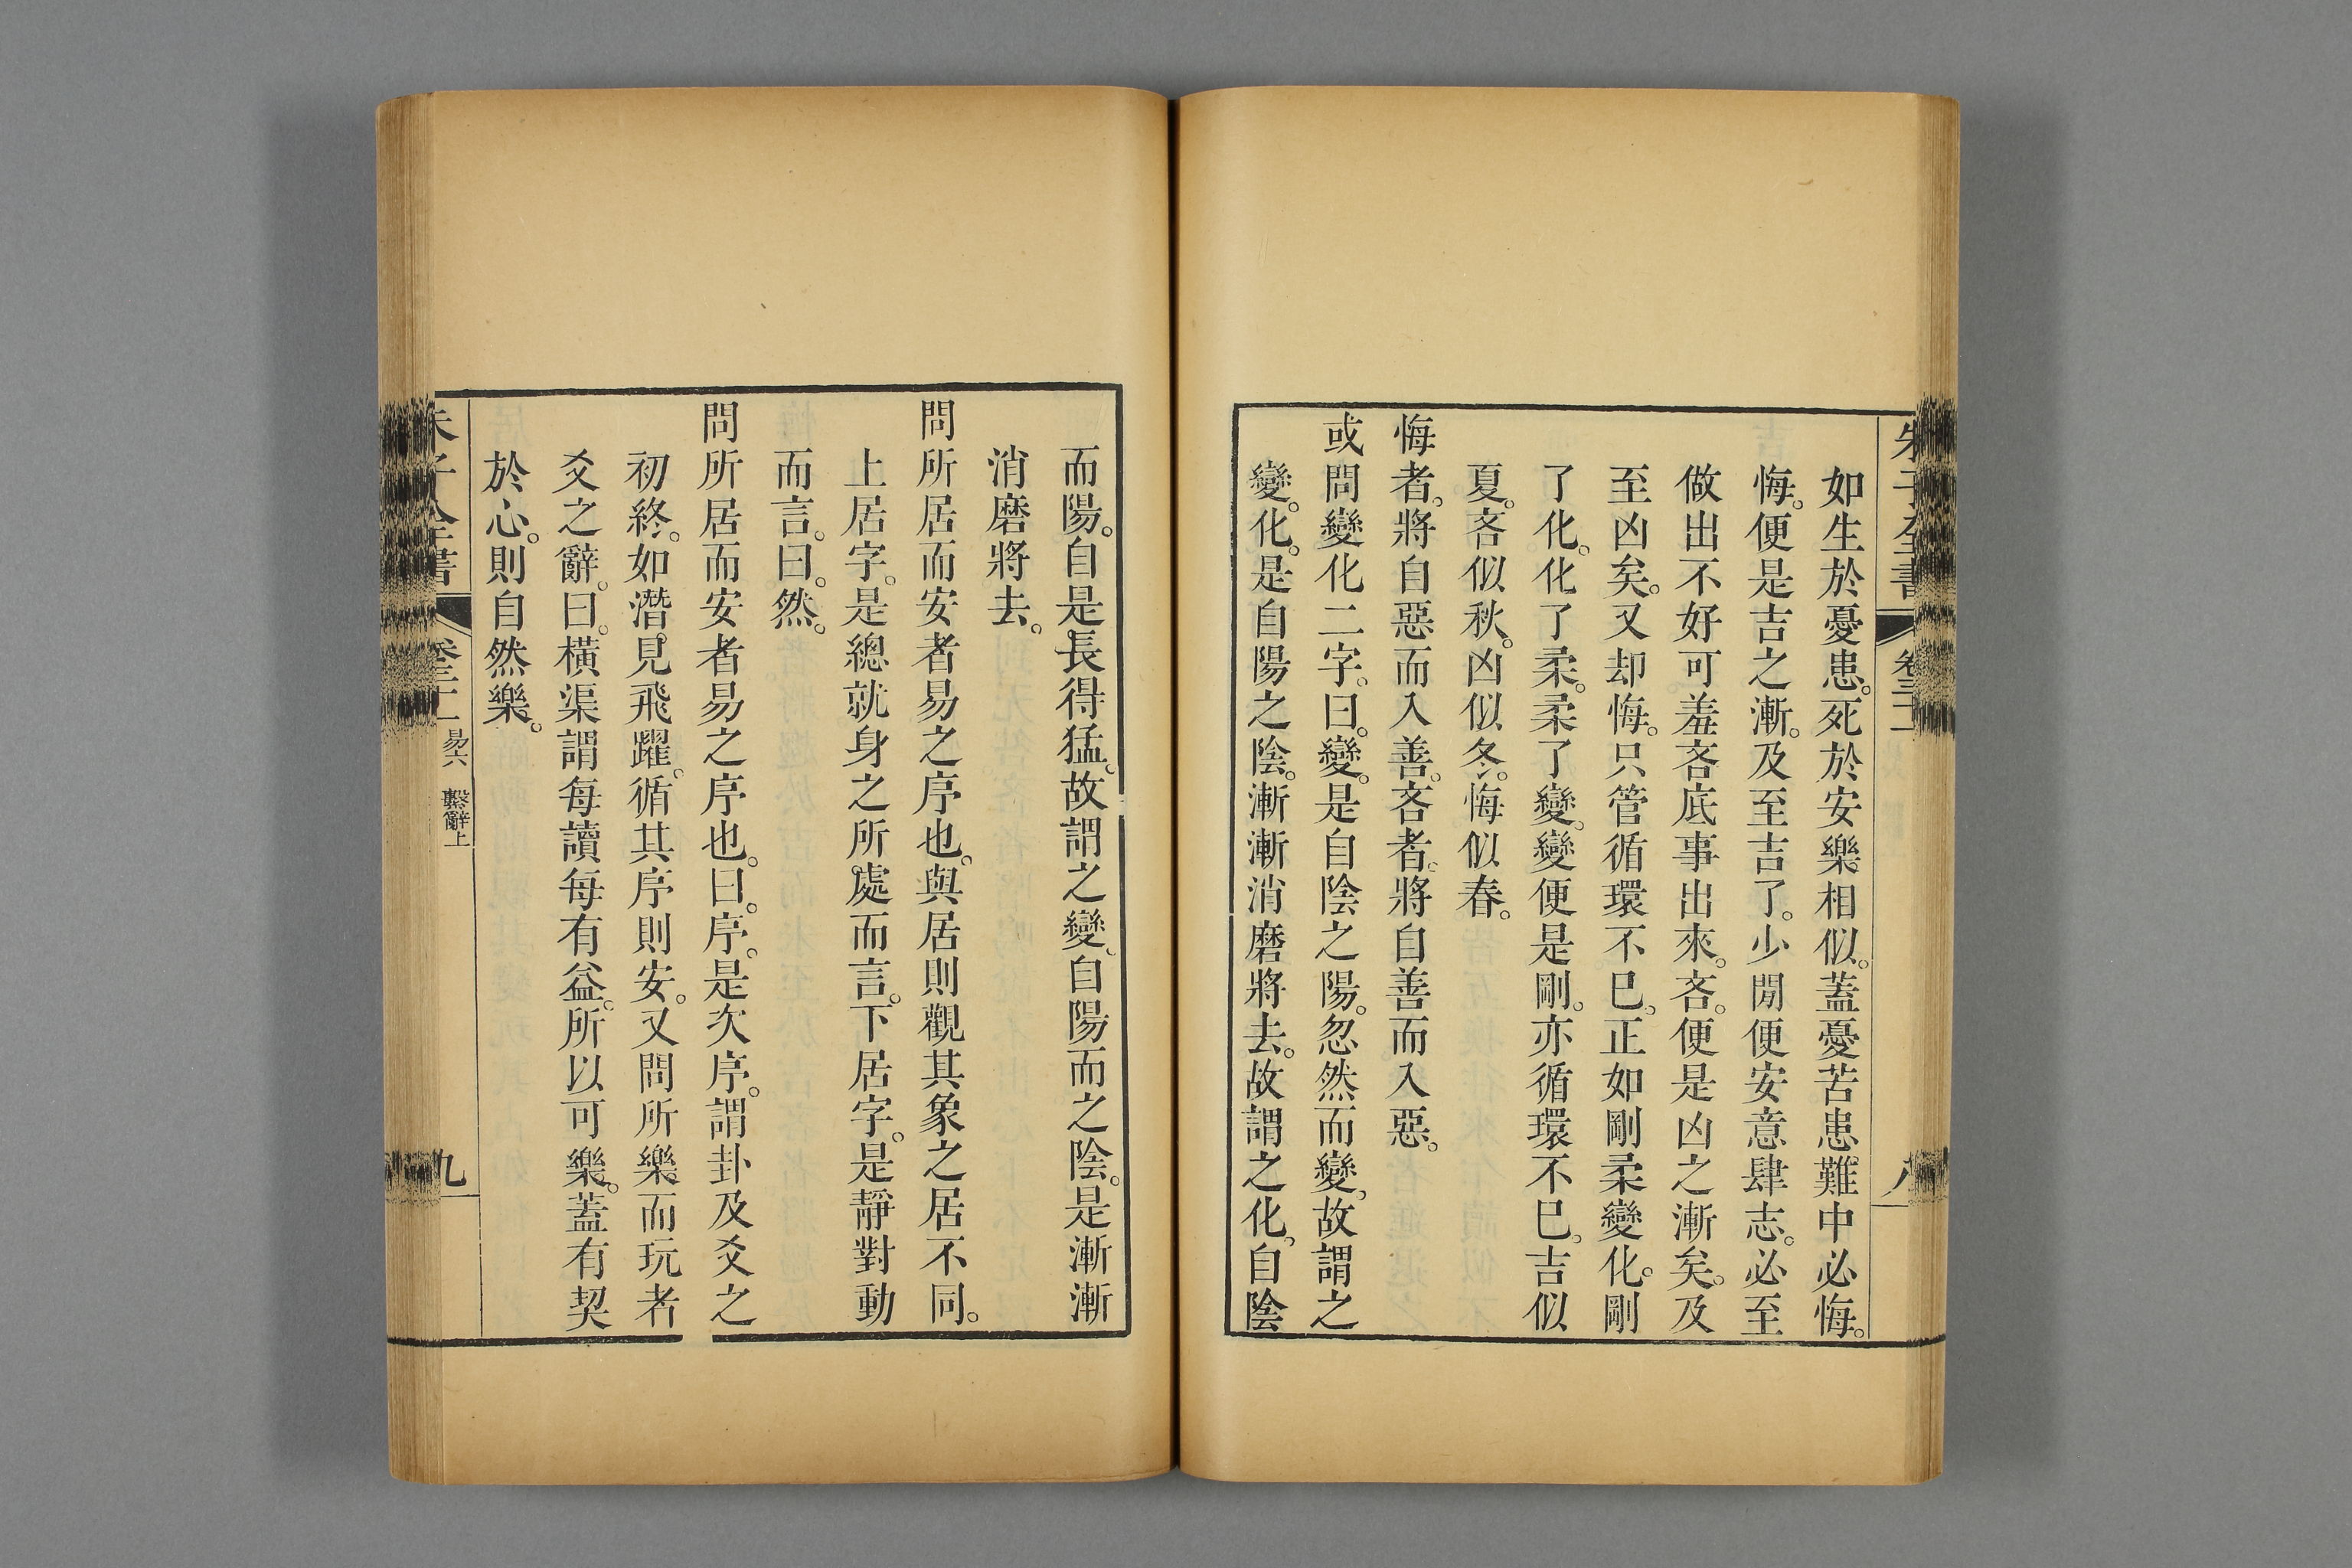 朱子全書 卷三十一 八
如生於憂患。死於安樂相似。蓋憂苦患難中必悔。
悔。便是吉之漸。及至吉了。少閒便安意肆志。必至
做出不好可羞吝底事出來。吝。便是凶之漸矣。及
至凶矣。又却悔。只管循環不巳。正如剛柔變化。剛
了化。化了柔。柔了變。變便是剛。亦循環不巳。吉似
夏。吝似秋。凶似冬。悔似春。
悔者。將自惡而入善。吝者。將自善而入惡。
或問變化二字。曰。變。是自陰之陽。忽然而變。故謂之
變。化。是自陽之陰。漸漸消磨將去。故謂之化。自陰
而陽。自是長得猛。故謂之變。自陽而之陰。是漸漸
消磨將去。
問所居而安者易之序也。與居則觀其象之居不同。
上居字。是總就身之所處而言。下居字。是靜對動
而言。曰。然。
問所居而安者易之序也。曰。序。是次序。謂卦及爻之
初終。如潛見飛躍。循其序則安。又問所樂而玩者
爻之辭。曰。橫渠謂每讀每有益。所以可樂。蓋有契
於心。則自然樂。
朱子全書 卷三十一 易六 繫辭上 九